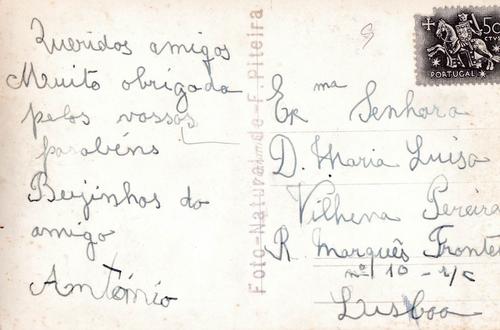 Queridos amigos
Muito obrigada
pelos vossos
parabéns
Beijinhos do
amigo
António
Foto-Natural-de-F. Piteira
50
CTVS
PORTUGAL
Exma Senhora
D. Maria Luisa
Vilhena Pereira
R. Marquês Fronte
nº 10 - r/c
Lisboa